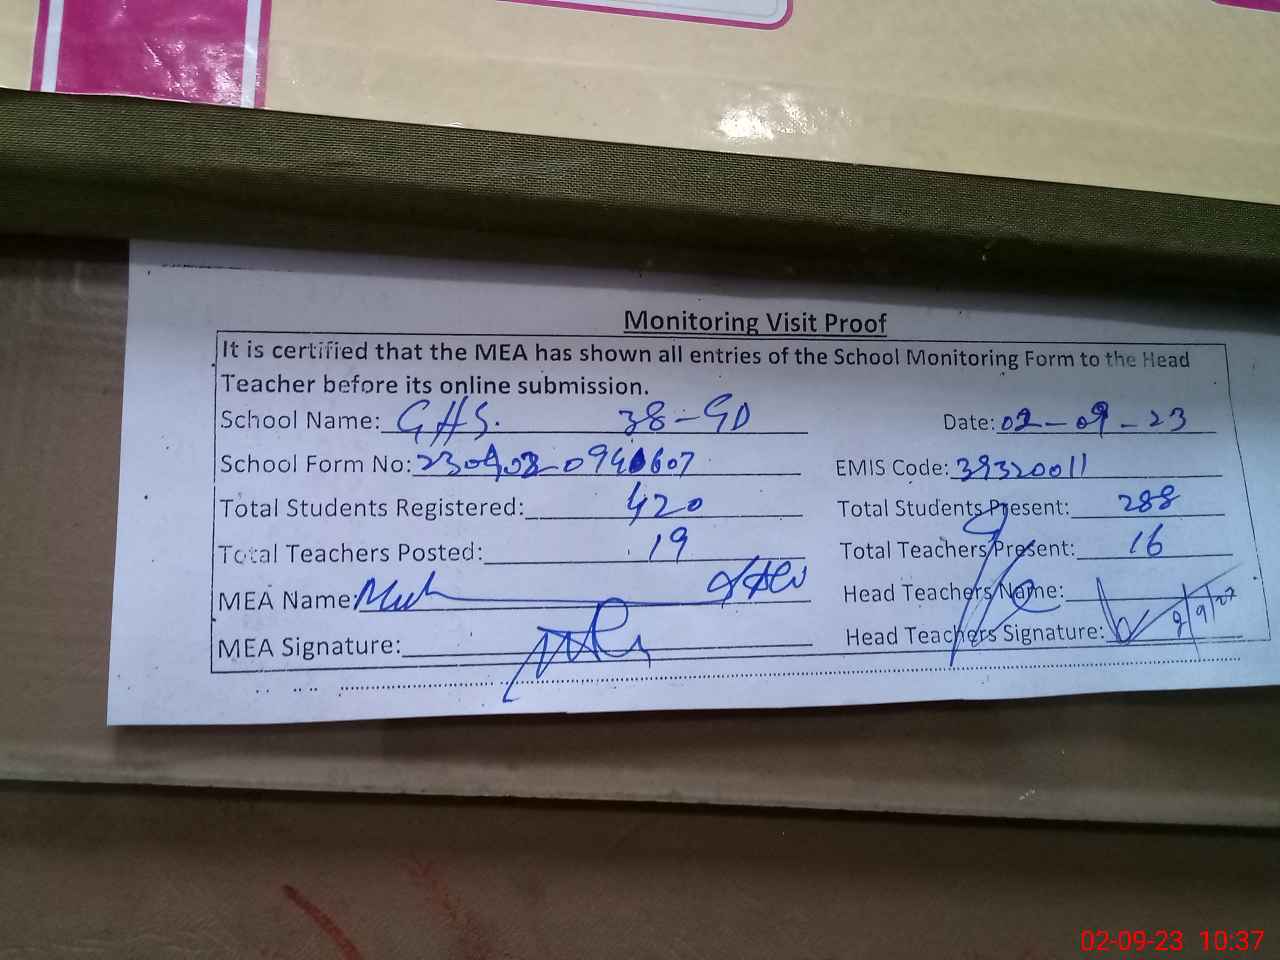 Monitoring Visit Proof
It is certified that the MEA has shown all entries of the School Monitoring Form to the Head
Teacher before its online submission.
School Name: GHS. 38-GD Date: 02-09-23
School Form No: EMIS Code: 39320011
Total Students Registered: 420 Total Students Present: 288
Total Teachers Posted: 19 Total Teachers Present: 16
MEA Name: Head Teachers Name:
MEA Signature: Head Teachers Signature:
02-09-23 10:37